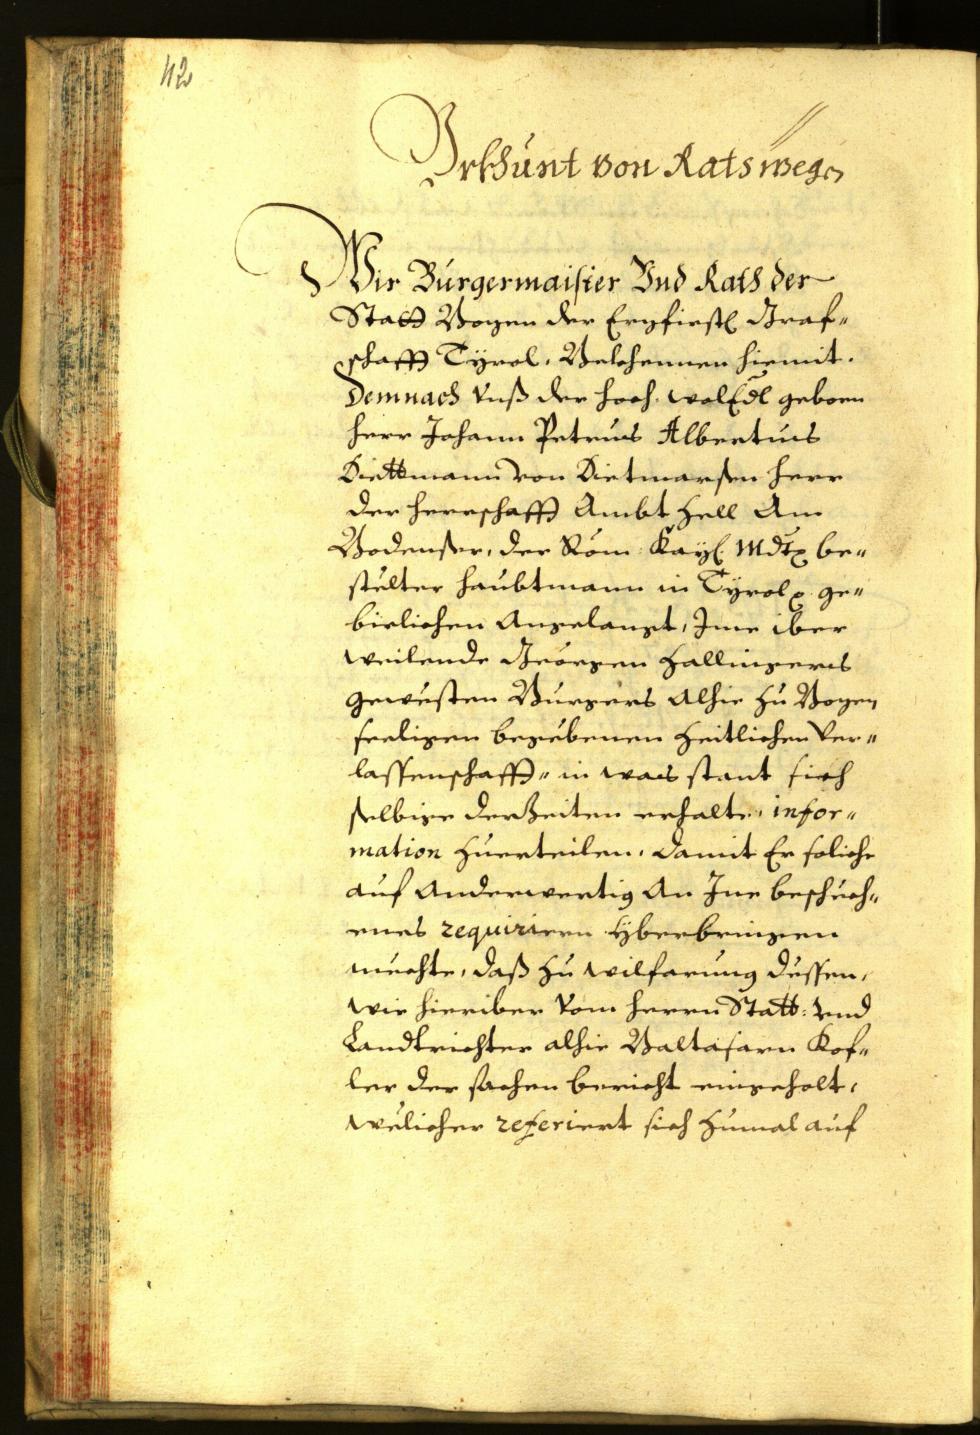 42
Vrkhunt von Rats weg
Wir Burgermaister Vnd Rath der
Statt Bozen der Erzfirstl Graf„
schafft Tyrol, Bekhennen hiemit.
Demnach Vnß der hoch. wolEdl geborn
herr Johann Petrus Albertus
Diettmann von Dietmarsen herr
der herrschafft Ambt Zell Am
Bodensee, der Röm: Kayl: Mdt be„
stelter haubtmann in Tyrol ge„
birlichen Angelangt, Ime iber
weilende Georgen Hallingers
gewesten Burgers Alhie zu Bozen
seeligen begebenen zeitlichen Ver„
lassenschafft„ in was stant sich
selbige derzeiten erhalte, infor„
mation zuerteilen, damit Er soliche
auf Anderwertig An Ine beschech„
enes requiriern Yberbringen
mechte, daß zu wilfarung dessen,
wir hieriber Vom herrn Statt: Vnd
Landtrichter alhie Baltasarn Kof„
ler der sachen bericht eingeholt,
welicher referiert sich zumal auf